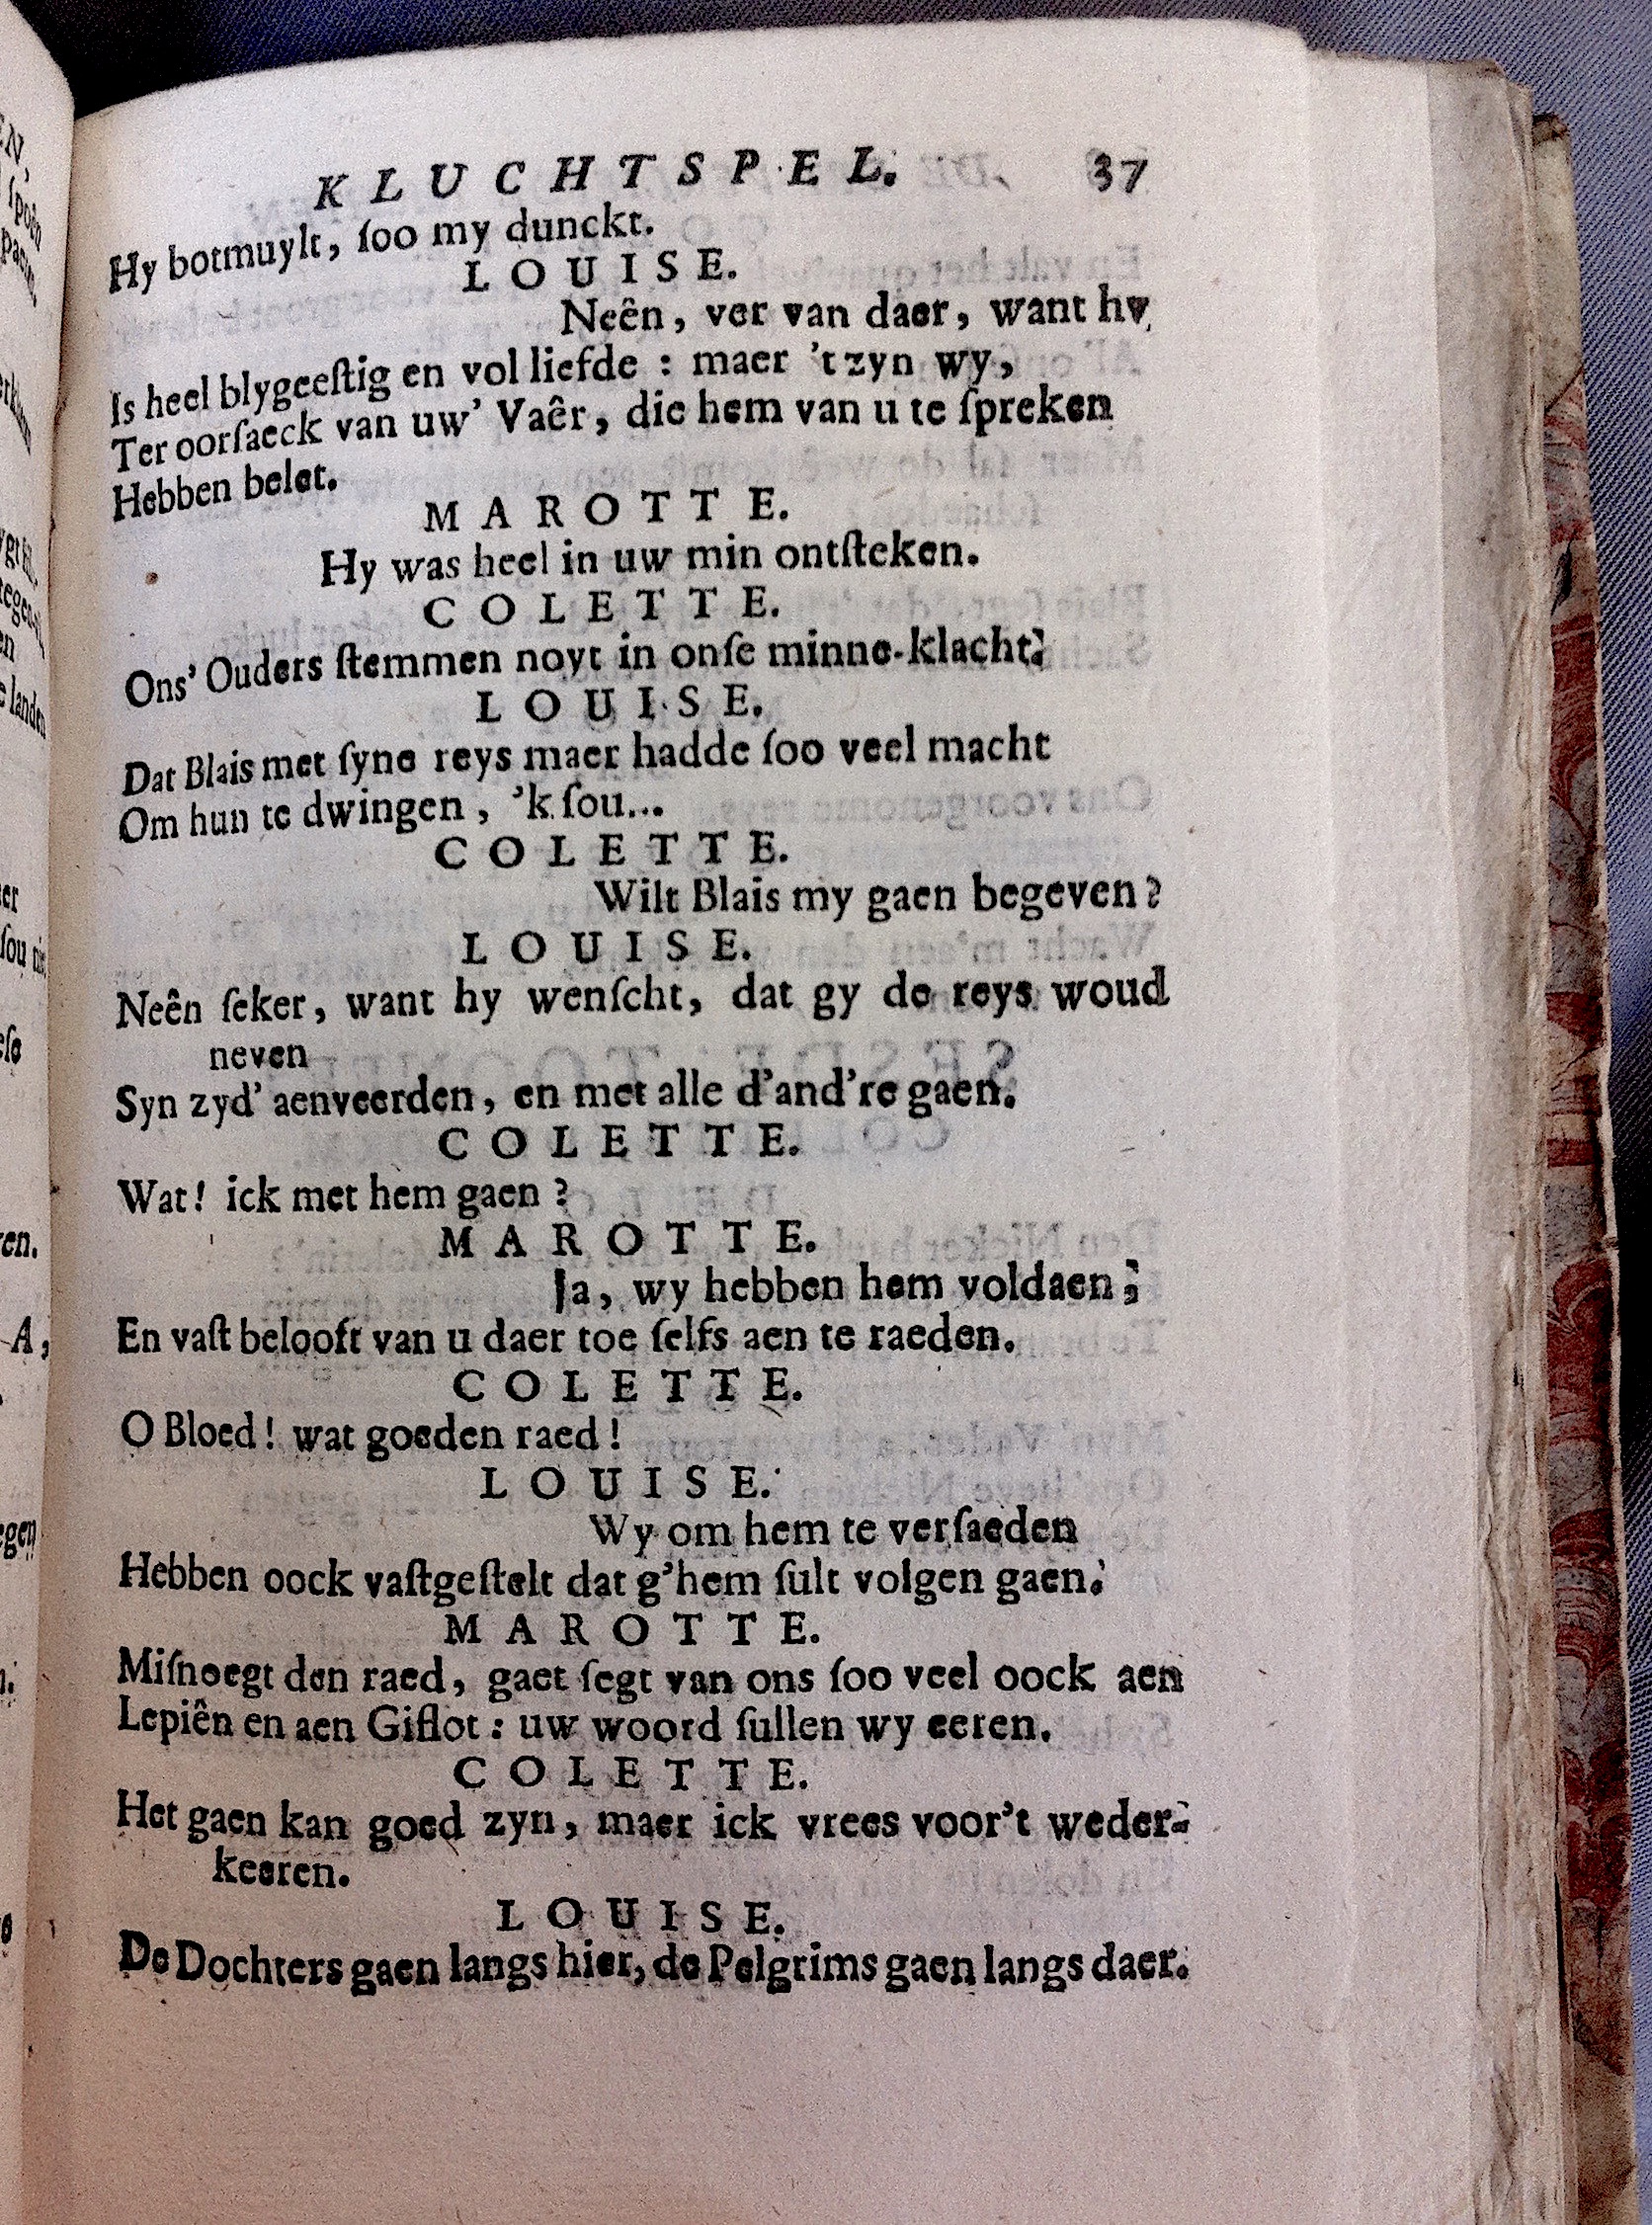 KLUCHTSPEL. 37
Hy botmuylt, ſoo my dunckt.
LOUISE.
Neên, ver van daer, want hy
Is heel blygeeſtig en vol liefde : maer 't zyn wy,
Ter oorſaeck van uw' Vaêr, die hem van u te ſpreken
Hebben belet.
MAROTTE.
Hy was heel in uw min ontſteken.
COLETTE.
Ons' Ouders ſtemmen noyt in onſe minne-klacht.
LOUISE.
Dat Blais met ſyne reys maer hadde ſoo veel macht
Om hun te dwingen, 'k ſou...
COLETTE.
Wilt Blais my gaen begeven?
LOUISE.
Neên ſeker, want hy wenſcht, dat gy de reys woud
neven
Syn zyd' aenveerden, en met alle d'and're gaen.
COLETTE.
Wat! ick met hem gaen?
MAROTTE.
Ja, wy hebben hem voldaen;
En vaſt belooft van u daer toe ſelfs aen te raeden.
COLETTE.
O Bloed! wat goeden raed!
LOUISE.
Wy om hem te verſaeden
Hebben oock vaſtgeſtelt dat g'hem ſult volgen gaen.
MAROTTE.
Miſnoegt den raed, gaet ſegt van ons ſoo veel oock aen
Lepiên en aen Giflot : uw woord ſullen wy eeren.
COLETTE.
Het gaen kan goed zyn, maer ick vrees voor't weder-
keeren.
LOUISE.
De Dochters gaen langs hier, de Pelgrims gaen langs daer.